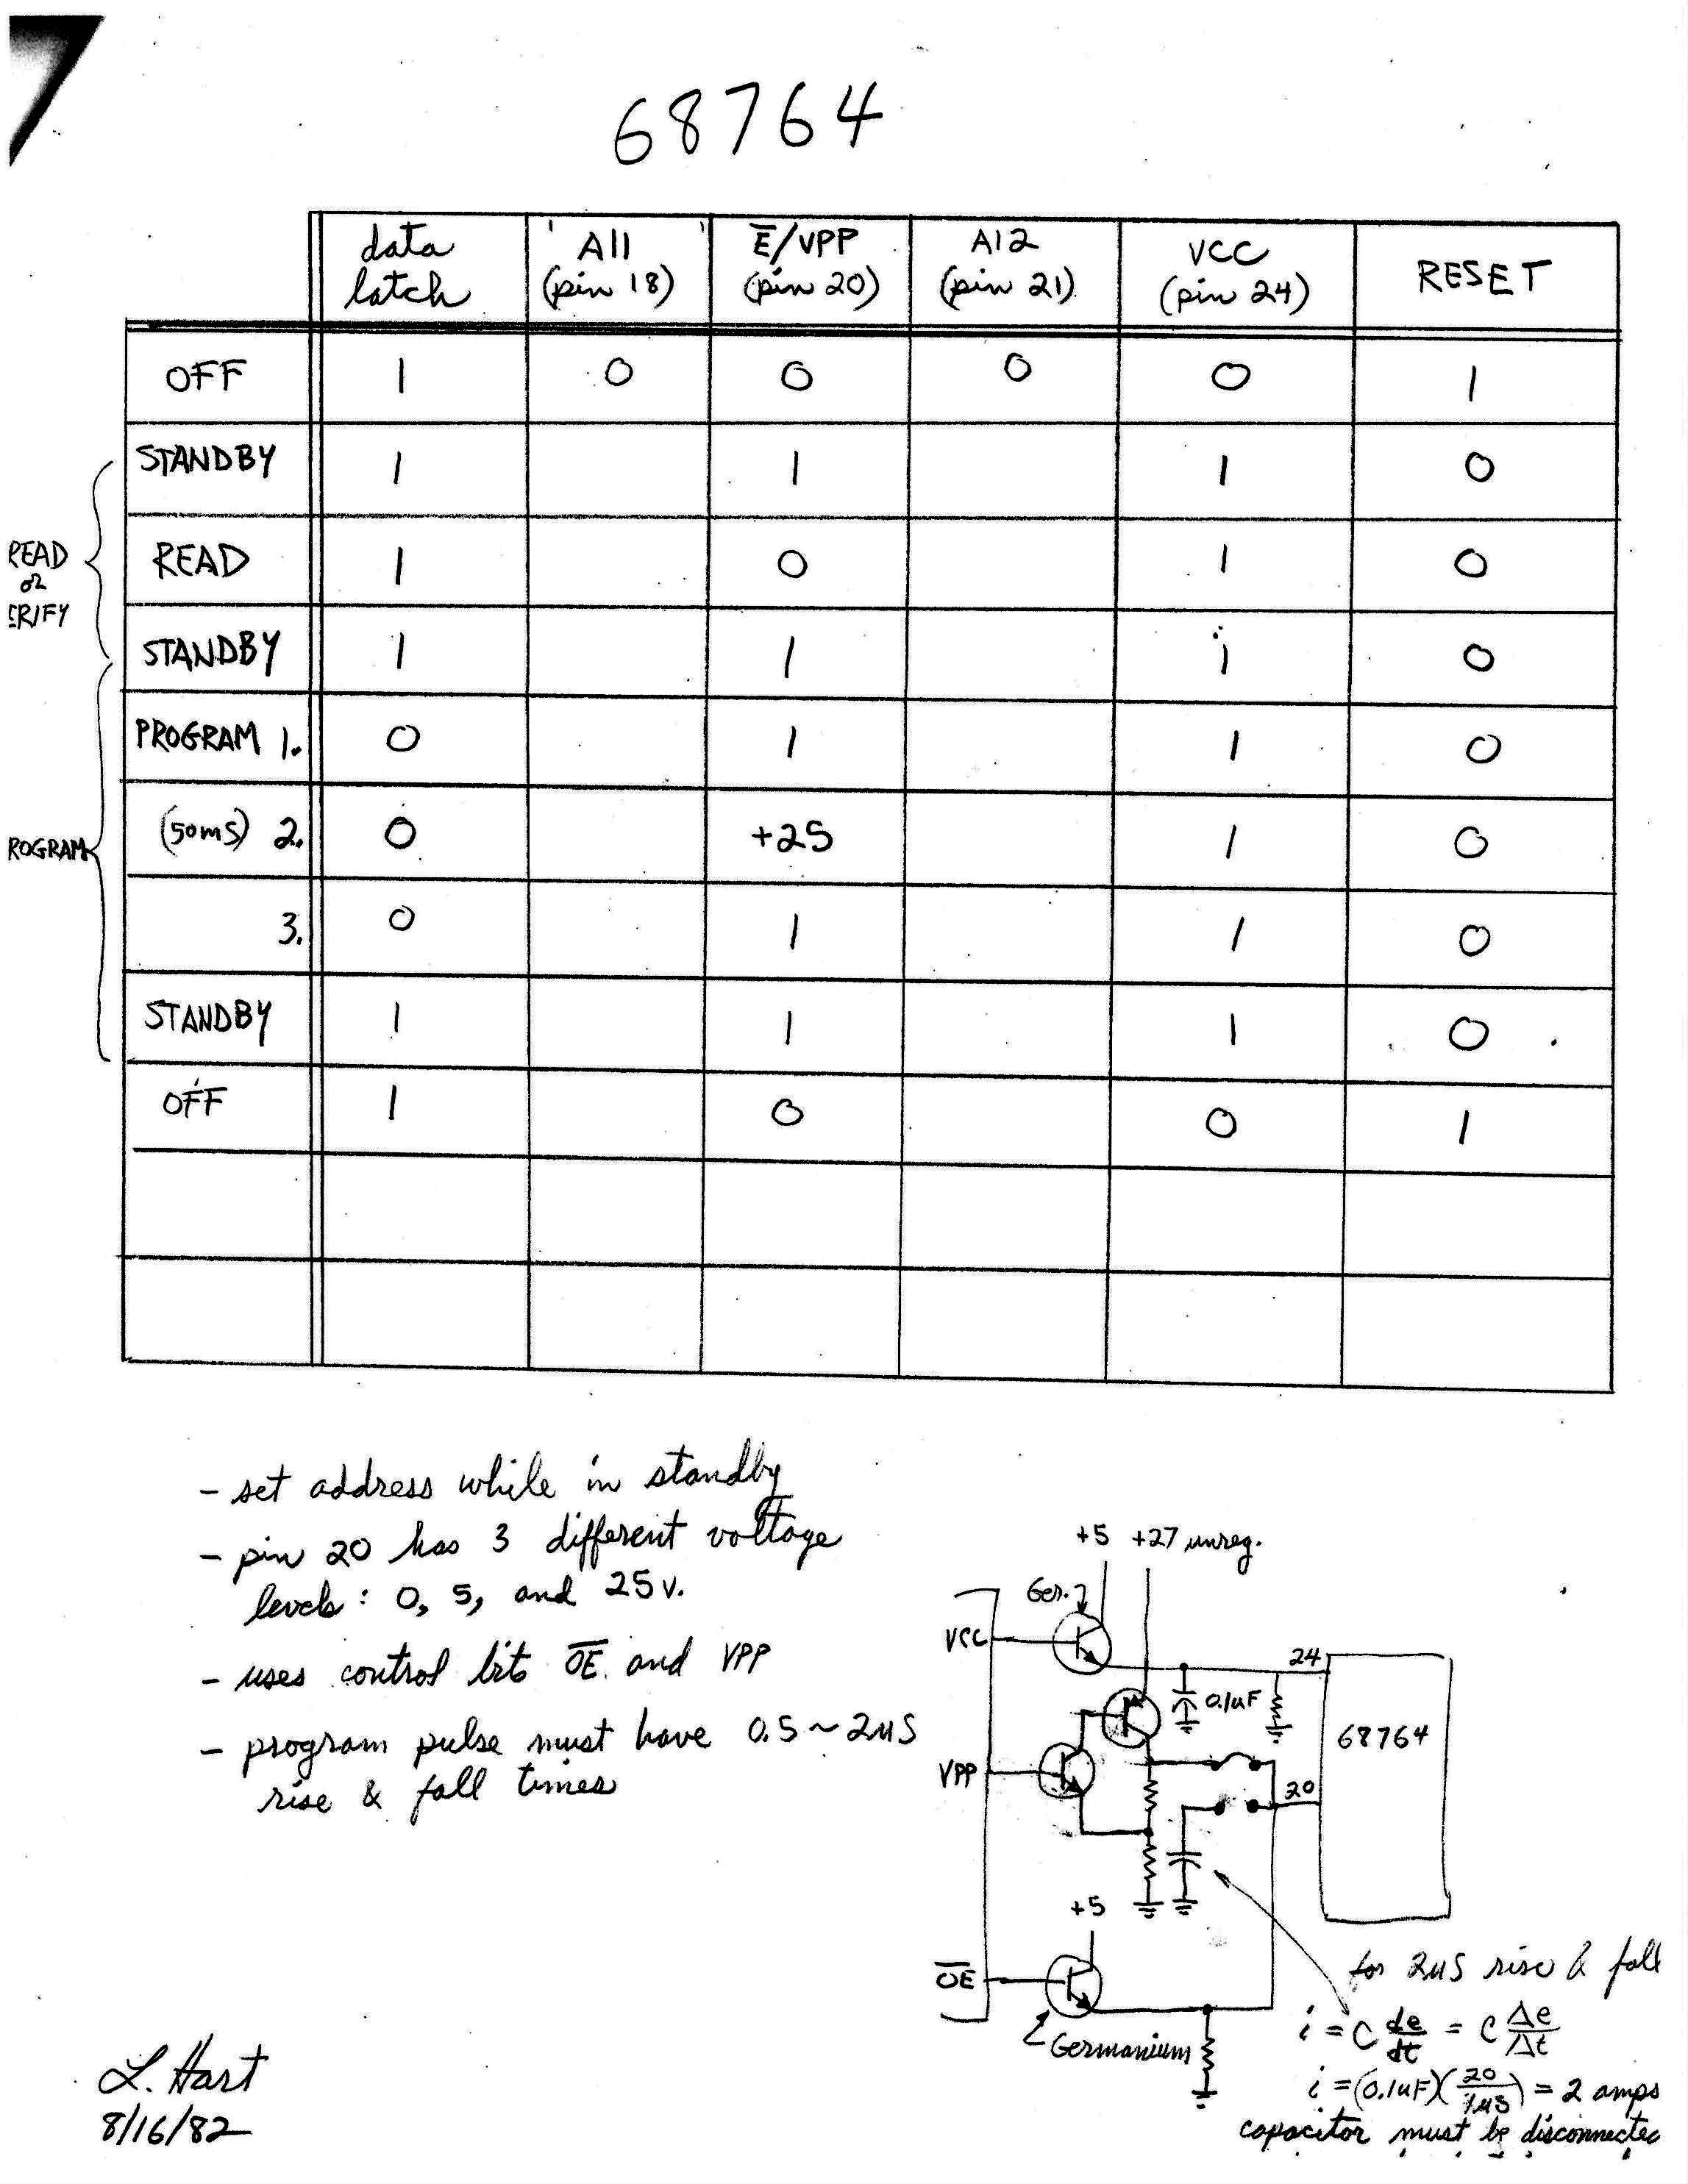 68764
data latch | A11 (pin 18) | E̅/VPP (pin 20) | A12 (pin 21) | VCC (pin 24) | RESET
OFF 1 0 0 0 0 1
STANDBY 1 1 1 0
READ 1 0 1 0
READ
or
ERIFY
STANDBY 1 1 1 0
PROGRAM 1. 0 1 1 0
(50mS) 2. 0 +25 1 0
ROGRAM
3. 0 1 1 0
STANDBY 1 1 1 0
OFF 1 0 0 1
- set address while in standby
- pin 20 has 3 different voltage
levels: 0, 5, and 25v.
- uses control bits O̅E̅ and VPP
- program pulse must have 0.5 ~ 2uS
rise & fall times
+5 +27 unreg.
Ger.
VCC
24
0.1uF
68764
VPP
20
+5
O̅E̅
Germanium
for 2uS rise & fall
i = C de/dt = C Δe/Δt
i = (0.1uF)(20/1uS) = 2 amps
capacitor must be disconnected
L. Hart
8/16/82